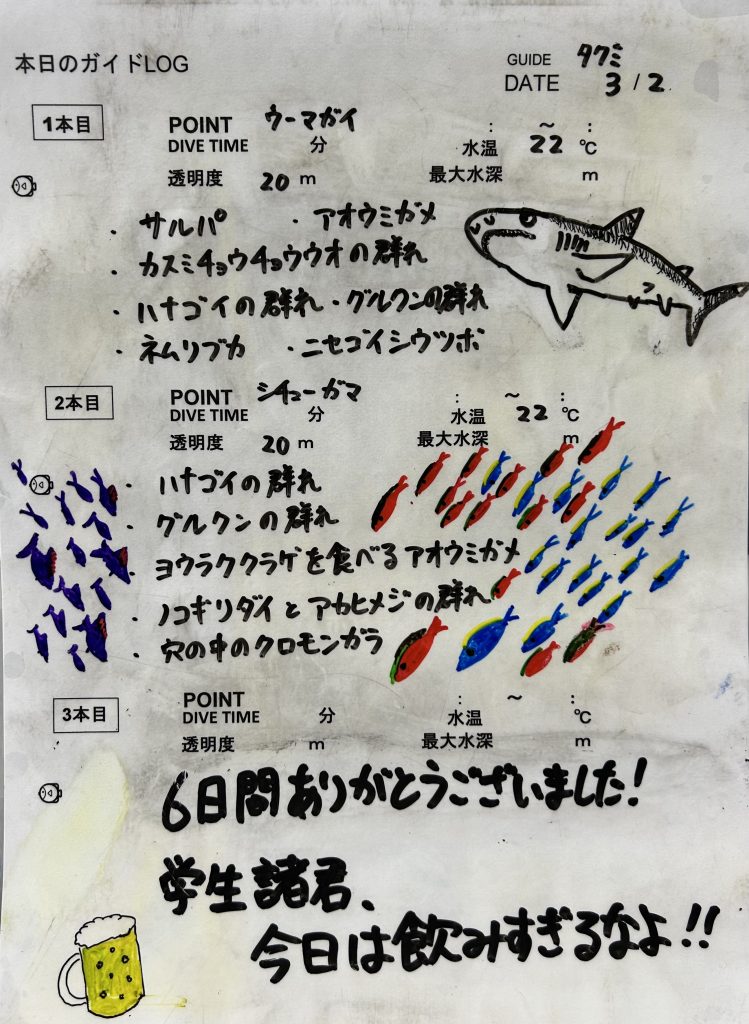 本日のガイドLOG
GUIDE タクミ
DATE 3/2
1本目
POINT ウーマガイ : ～ :
DIVE TIME 分 水温 22 ℃
透明度 20 m 最大水深 m
・サルパ ・アオウミガメ
・カスミチョウチョウウオの群れ
・ハナゴイの群れ・グルクンの群れ
・ネムリブカ ・ニセゴイシウツボ
2本目
POINT シチューガマ : ～ :
DIVE TIME 分 水温 22 ℃
透明度 20 m 最大水深 m
・ハナゴイの群れ
・グルクンの群れ
・ヨウラククラゲを食べるアオウミガメ
・ノコギリダイとアカヒメジの群れ
・穴の中のクロモンガラ
3本目
POINT : ～ :
DIVE TIME 分 水温 ℃
透明度 m 最大水深 m
6日間ありがとうございました!
学生諸君、
今日は飲みすぎるなよ!!